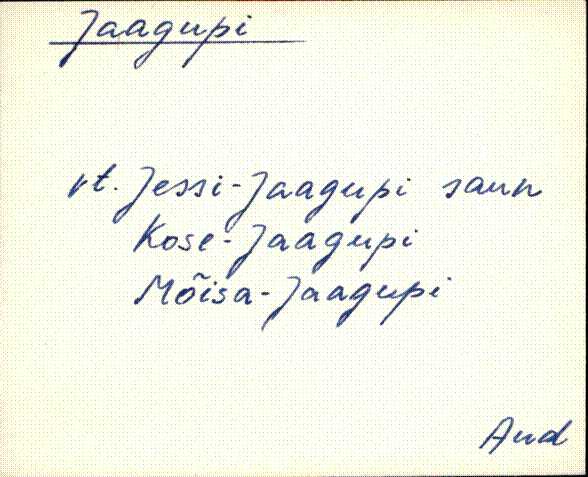 Jaagupi
vt. Jessi-Jaagupi saun
Kose-Jaagupi
Mõisa-Jaagupi
Aud